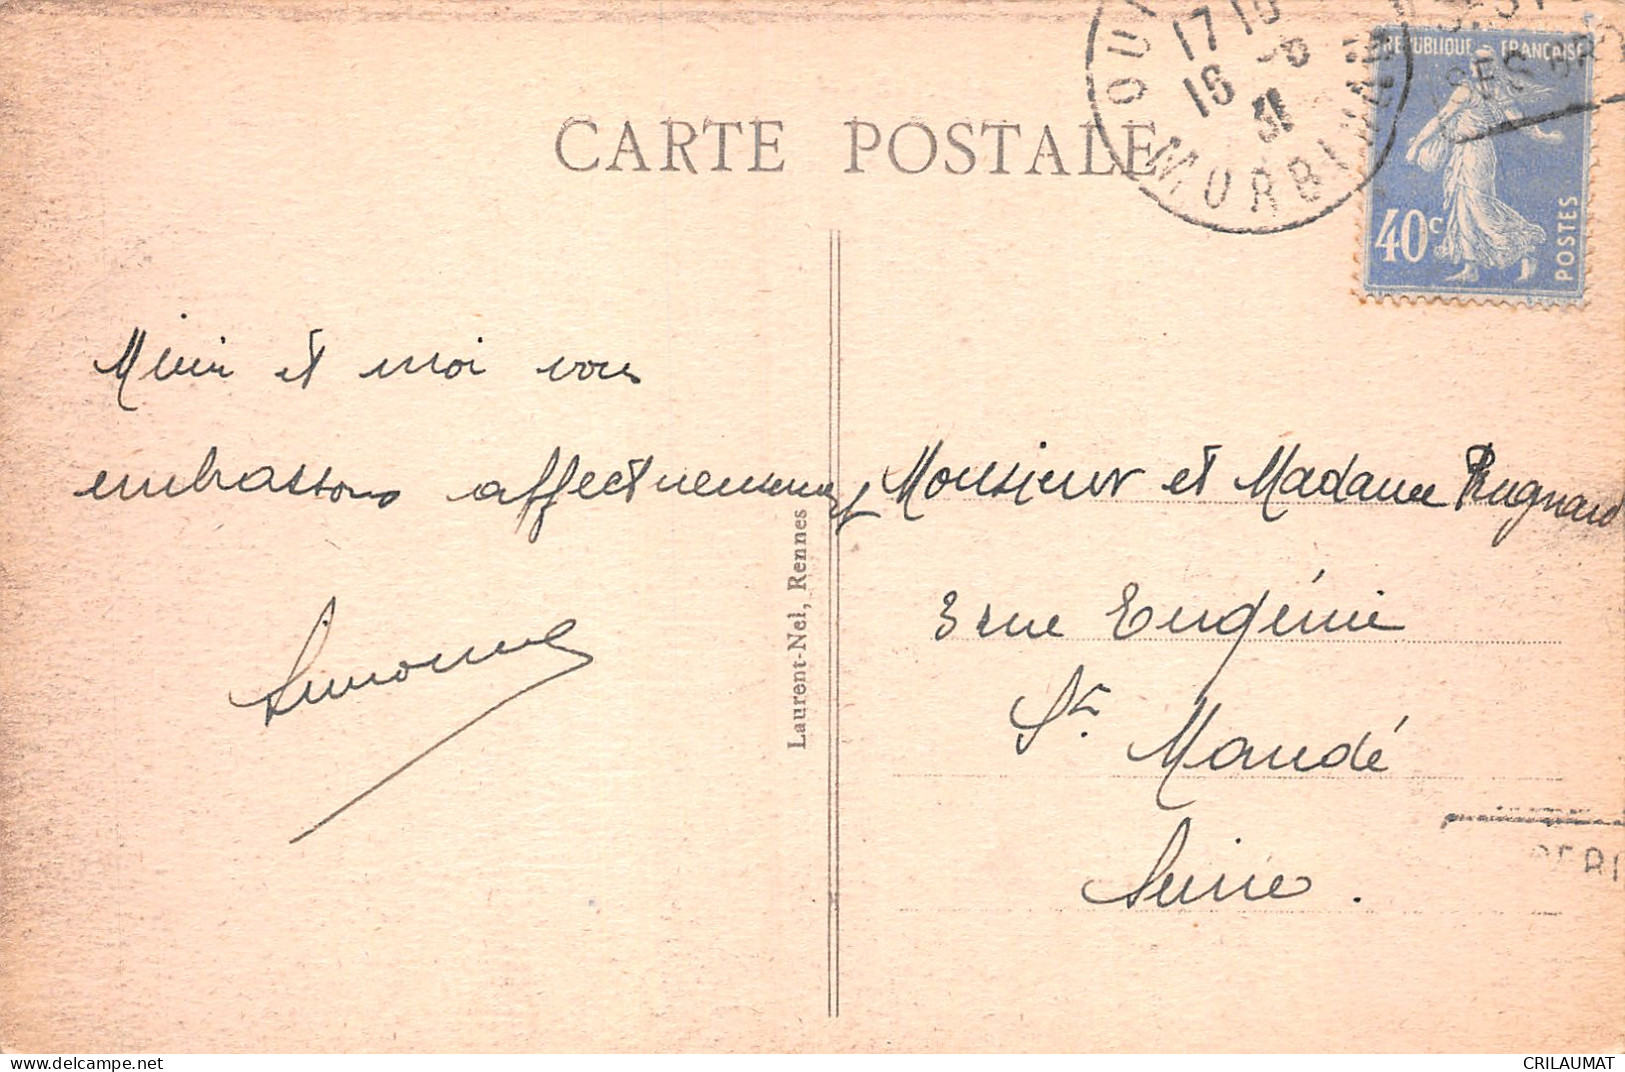 CARTE POSTALE
17 15
16
31
MORBIHAN
REPUBLIQUE FRANÇAISE
40c
POSTES
et moi vous
embrassons affectueusement
Simonne
Laurent-Nel, Rennes
Monsieur et Madame Rugnard
3 rue Eugénie
St. Mandé
Seine.
CRILAUMAT